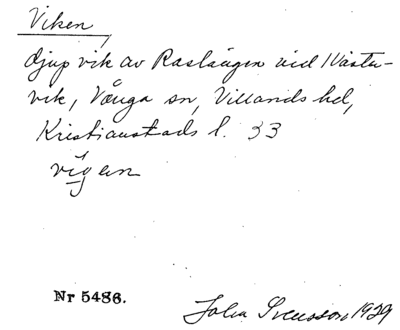 Viken,
djup vik av Raslången vid Västu-
vik, Vånga sn, Villands hd,
Kristianstads l. 33
vigen
Nr 5486.
John Svensson 1929